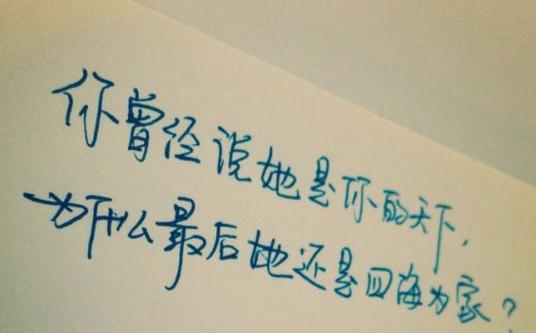 你曾经说她是你的天下,
为什么最后她还是四海为家?